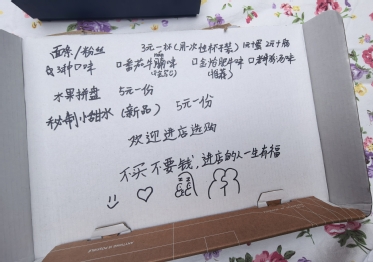 面条/粉丝 3元一杯(用一次性杯子装) 1元+蛋 2元+肠
3种口味 口番茄牛腩味 口金汤肥牛味 口
(推荐)
水果拼盘 5元一份
秘制小甜水(新品) 5元一份
欢迎进店选购
不买不要钱,进店的人一生有福